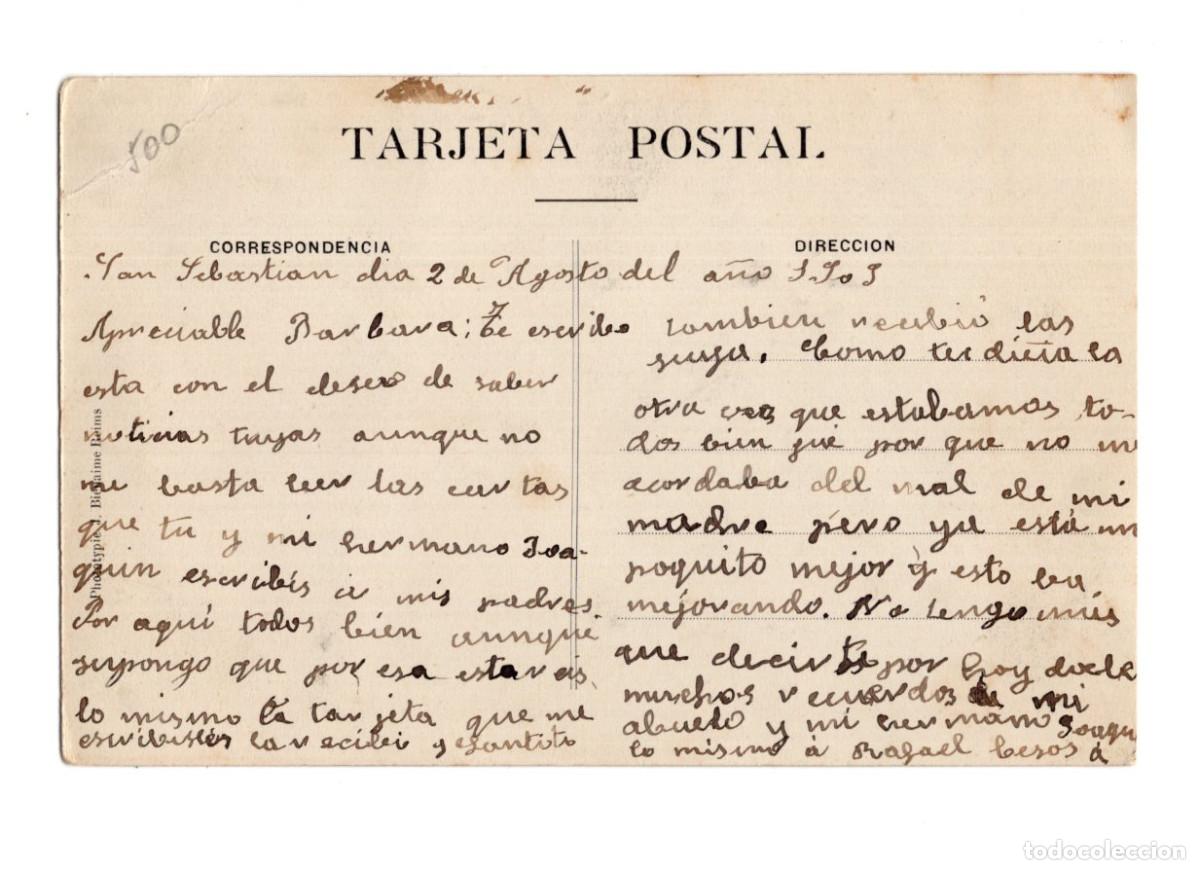 500
TARJETA POSTAL
CORRESPONDENCIA
DIRECCION
San Sebastian dia 2 de Agosto del año
Apreciable Barbara; Te escribo
esta con el deseo de saber
noticias tuyas aunque no
me basta leer las cartas
que tu y mi hermano Joa-
quin escribis a mis padres.
Por aquí todos bien aunque
supongo que por esa estareis
lo mismo la tarjeta que me
escribisteis la recibi y Santito
tambien recibió las
suya. Como te decia la
otra vez que estabamos to-
dos bien fué por que no me
acordaba del mal de mi
madre pero ya está un
poquito mejor y esto ba
mejorando. No tengo más
que decirte por hoy
muchos recuerdos de mi
abuelo y mi hermano Joaqu
lo mismo á Rafael besos á
Phototypie J. Bienaimé Reims
todocoleccion